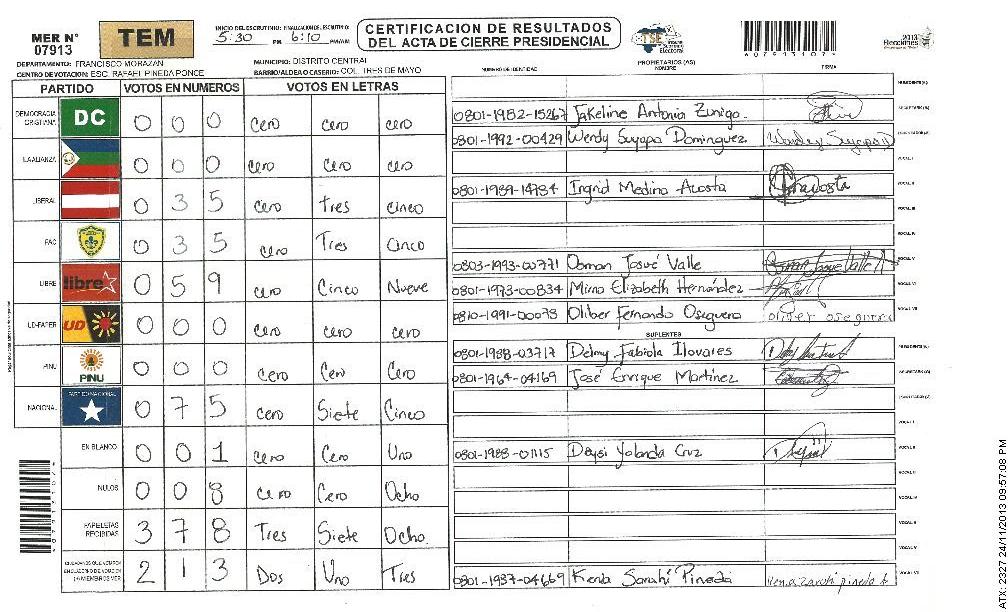 MER N° 07913
TEM
INICIO DEL ESCRUTINIO: 5:30 PM FINALIZACION DEL ESCRUTINIO: 6:10 PM/AM
CERTIFICACION DE RESULTADOS
DEL ACTA DE CIERRE PRESIDENCIAL
TSE Tribunal Supremo Electoral
2013 Elecciones
DEPARTAMENTO: FRANCISCO MORAZAN
MUNICIPIO: DISTRITO CENTRAL
CENTRO DE VOTACION: ESC. RAFAEL PINEDA PONCE
BARRIO/ALDEA O CASERIO: COL. TRES DE MAYO
NUMERO DE IDENTIDAD PROPIETARIOS (AS) NOMBRE FIRMA
PARTIDO VOTOS EN NUMEROS VOTOS EN LETRAS
DEMOCRACIA CRISTIANA DC 0 0 0 cero cero cero
LA ALIANZA 0 0 0 cero cero cero
LIBERAL 0 3 5 cero tres cinco
PAC 0 3 5 cero Tres Cinco
LIBRE libre 0 5 9 cero Cinco Nueve
UD-FAPER UD 0 0 0 cero cero cero
PINU PINU 0 0 0 cero Cero Cero
NACIONAL PARTIDO NACIONAL 0 7 5 cero Siete Cinco
EN BLANCO 0 0 1 cero Cero Uno
NULOS 0 0 8 cero Cero Ocho
PAPELETAS RECIBIDAS 3 7 8 Tres Siete Ocho
2 1 3 Dos Uno Tres
PRESIDENTE(A)
0801-1982-15267 Jakeline Antonia Zuniga SECRETARIO(A)
0801-1992-00429 Wendy Suyapa Dominguez Wendy Suyapa D ESCRUTADOR(A)
VOCAL I
0801-1989-14784 Ingrid Medina Acosta VOCAL II
VOCAL III
VOCAL IV
0803-1993-00771 Osman Josué Valle VOCAL V
0801-1973-00834 Mirna Elizabeth Hernández VOCAL VI
0810-1991-00078 Oliber Fernando Oseguera oliber oseguera VOCAL VII
SUPLENTES
0801-1988-03717 Delmy Fabiola Llovares PRESIDENTE(A)
0801-1964-04169 José Enrique Martínez SECRETARIO(A)
ESCRUTADOR(A)
VOCAL I
0801-1988-01115 Deysi Yolanda Cruz VOCAL II
VOCAL III
VOCAL IV
VOCAL V
VOCAL VI
0801-1987-04669 Kenia Sarahi Pineda VOCAL VII
ATX-2327 24/11/2013 09:57:08 PM